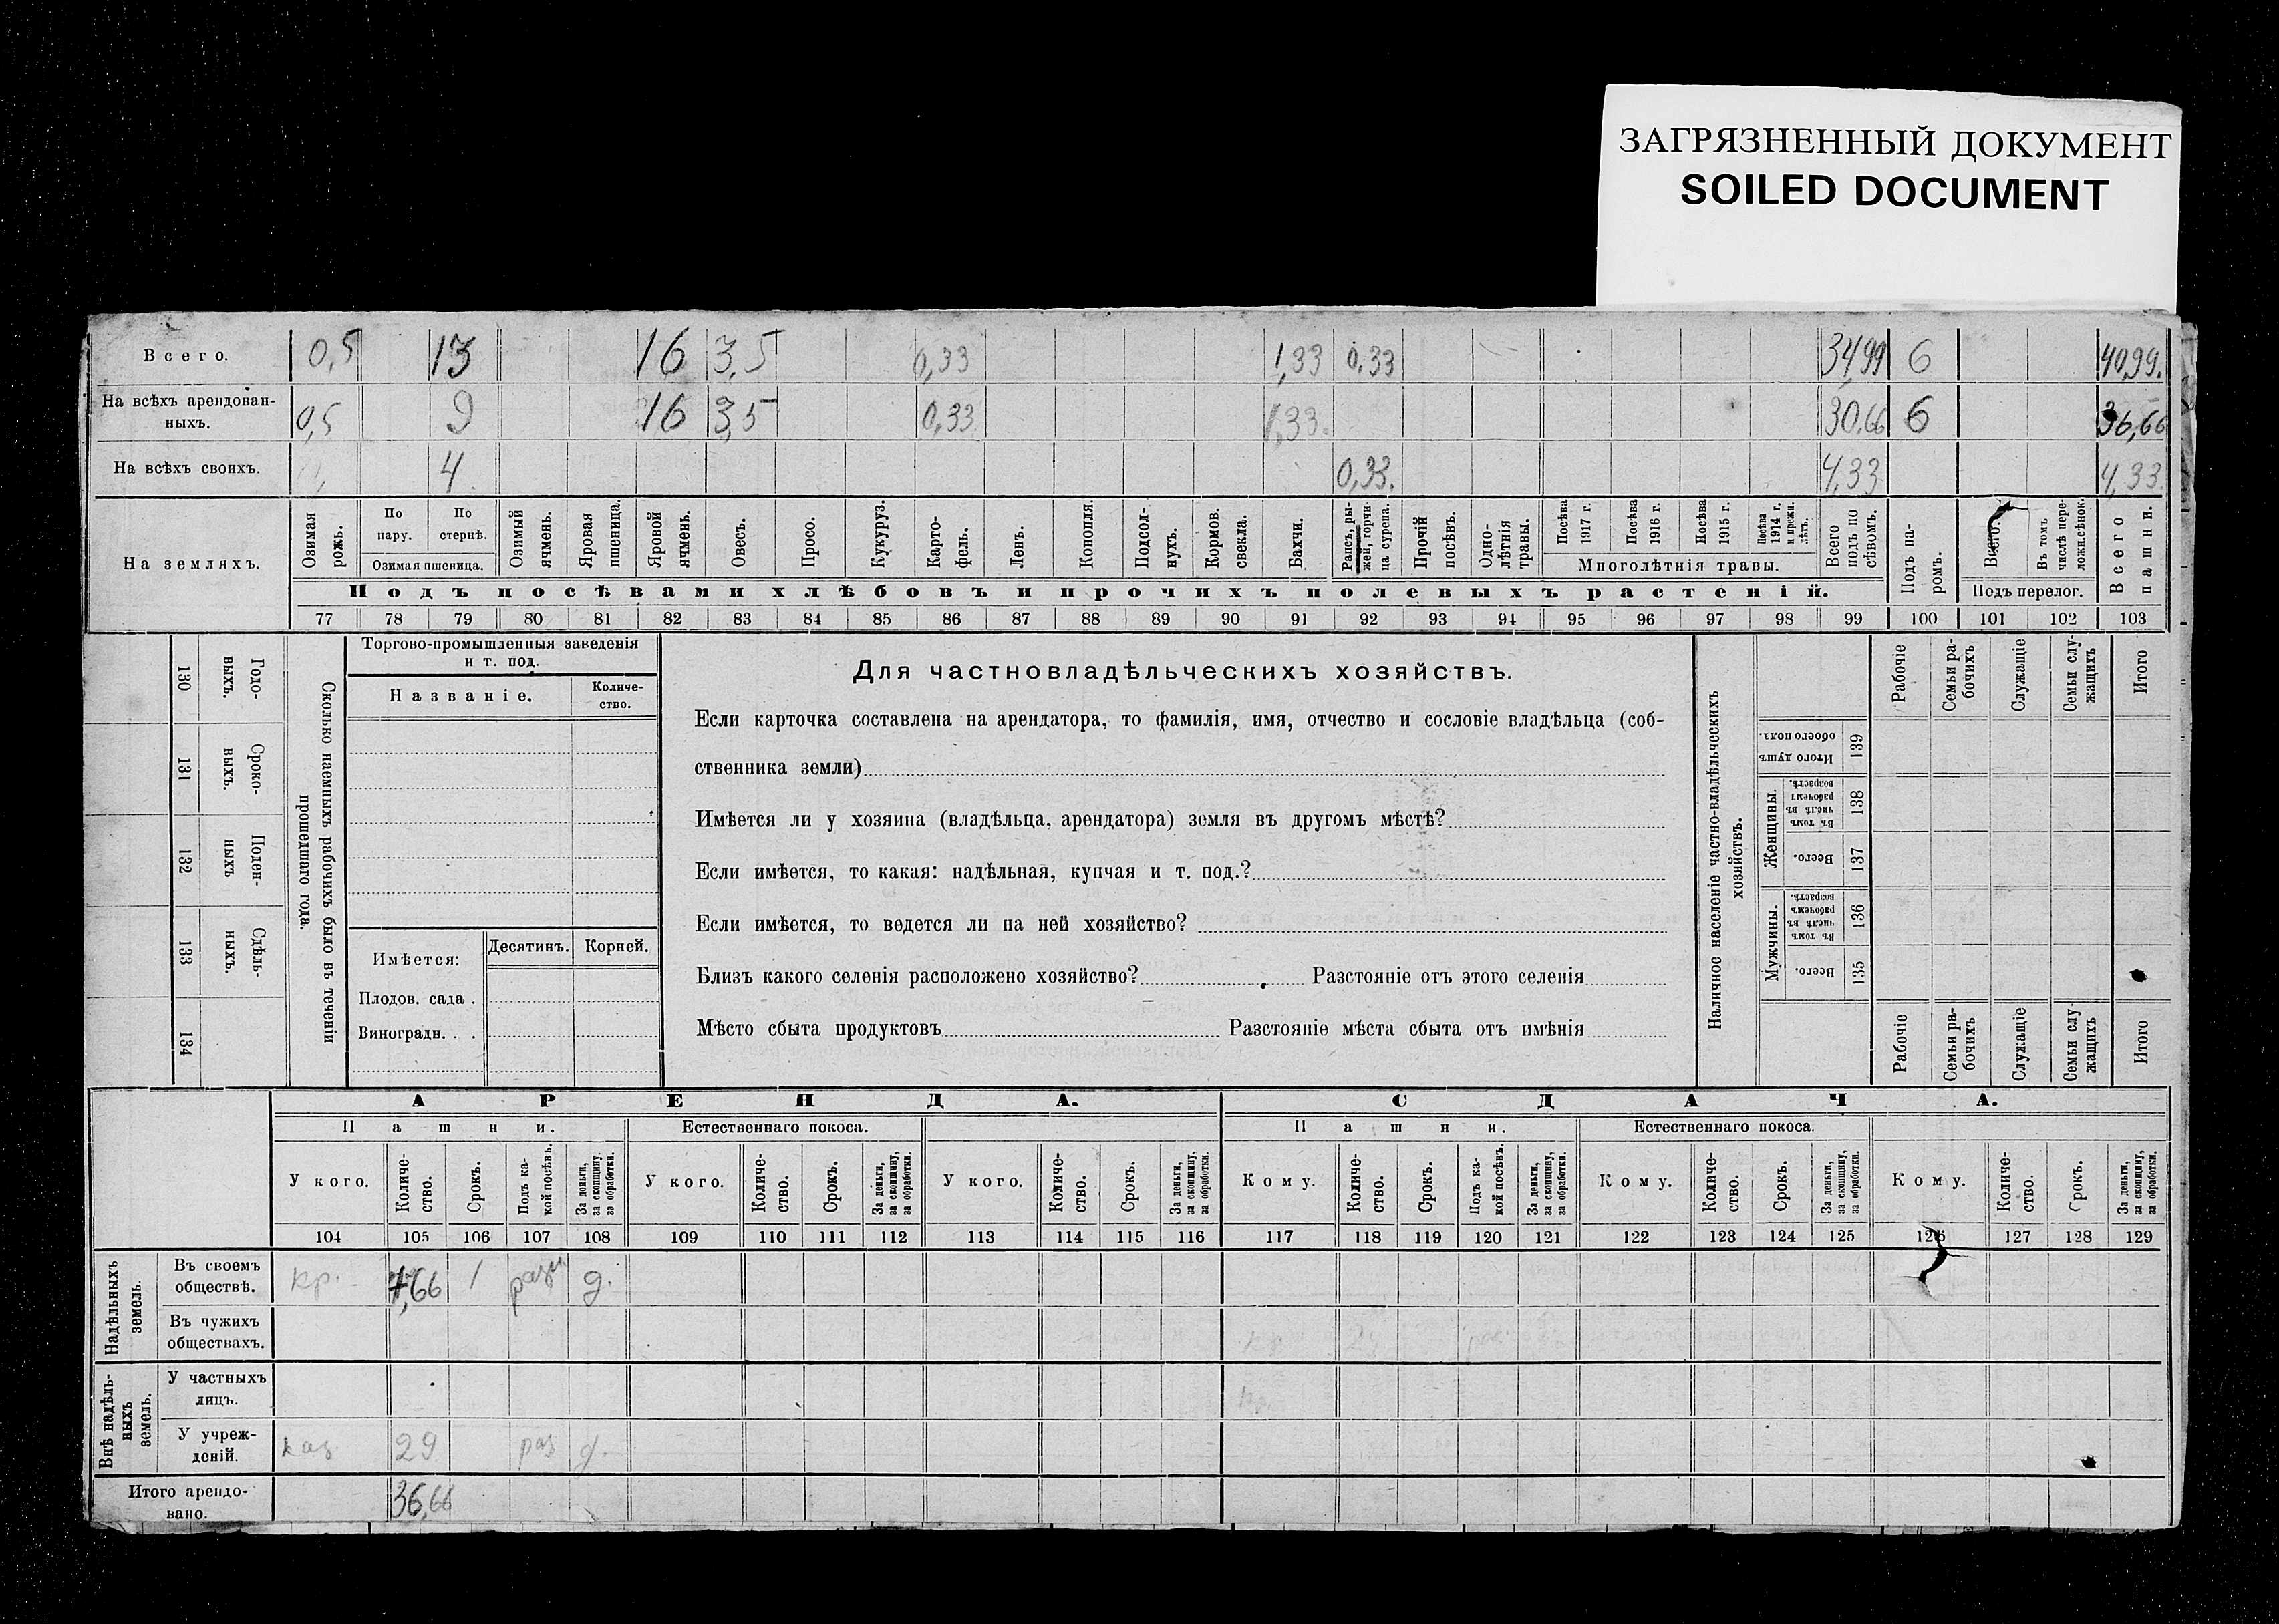 ЗАГРЯЗНЕННЫЙ ДОКУМЕНТ
SOILED DOCUMENT
Всего. 0,5 13 16 3,5 0,33 1,33 0,33 34,99 6 40,99.
На всѣхъ арендован-
ныхъ. 0,5 9 16 3,5 0,33 1,33. 30,66 6 36,66
На всѣхъ своихъ. 4 0,33. 4,33 4,33
На земляхъ.
Озимая рожь.
По пару.
По стернѣ.
Озимая пшеница.
Озимый ячмень.
Яровая пшеница.
Яровой ячмень.
Овесъ.
Просо.
Кукуруз.
Карто-
фель.
Ленъ.
Конопля.
Подсол-
нухъ.
Кормов. свекла.
Бахчи.
Рапсъ, ры-
жей, горчи
ца сурепа.
Прочій посѣвъ.
Одно-
лѣтнія
травы.
Посѣва 1917 г.
Посѣва 1916 г.
Посѣва 1915 г.
Посѣва 1914 г. и прежн. лѣтъ.
Многолѣтнія травы.
Всего подъ по
сѣвомъ.
Подъ па-
ромъ.
Всего.
Въ томъ числѣ пере-
ложн.сѣнок.
Подъ перелог.
Всего пашни.
Подъ посѣвами хлѣбовъ и прочихъ полевыхъ растеній.
77 78 79 80 81 82 83 84 85 86 87 88 89 90 91 92 93 94 95 96 97 98 99 100 101 102 103
130 Годо-
выхъ.
131 Сроко-
выхъ.
132 Поден-
ныхъ
133 Сдѣль-
ныхъ.
134
Сколько наемныхъ рабочихъ было въ теченіи
прошедшаго года.
Торгово-промышленныя заведенія
и т. под.
Названіе.
Количе-
ство.
Имѣется:
Десятинъ.
Корней.
Плодов. сада .
Виноградн. . .
Для частновладѣльческихъ хозяйствъ.
Если карточка составлена на арендатора, то фамилія, имя, отчество и сословіе владѣльца (соб-
ственника земли)
Имѣется ли у хозяина (владѣльца, арендатора) земля въ другомъ мѣстѣ?
Если имѣется, то какая: надѣльная, купчая и т. под.?
Если имѣется, то ведется ли на ней хозяйство?
Близъ какого селенія расположено хозяйство? Разстояніе отъ этого селенія
Мѣсто сбыта продуктовъ Разстояніе мѣста сбыта отъ имѣнія
Наличное населеніе частно-владѣльческихъ
хозяйствъ.
Рабочіе
Семьи ра-
бочихъ
Служащіе
Семьи слу-
жащихъ
Итого
Итого душ обоего пола. 139
Женщины.
Въ томъ числѣ въ рабочемъ возрастѣ. 138
Всего. 137
Мужчины.
Въ томъ числѣ въ рабочемъ возрастѣ. 136
Всего. 135
Рабочіе
Семьи ра-
бочихъ
Служащіе
Семьи слу
жащихъ
Итого
АРЕНДА. СДАЧА.
Пашни. Естественнаго покоса. Пашни. Естественнаго покоса.
У кого.
Количе-
ство.
Срокъ.
Подъ ка-
кой посѣвъ.
За деньги, за скопщину, за обработки.
У кого.
Количе-
ство.
Срокъ.
За деньги, за скопщину, за обработки.
У кого.
Количе-
ство.
Срокъ.
За деньги, за скопщину, за обработки.
Кому.
Количе-
ство.
Срокъ.
Подъ ка-
кой посѣвъ.
За деньги, за скопщину, за обработки.
Кому.
Количе-
ство.
Срокъ.
За деньги, за скопщину, за обработки.
Кому.
Количе-
ство.
Срокъ.
За деньги, за скопщину, за обработки.
104 105 106 107 108 109 110 111 112 113 114 115 116 117 118 119 120 121 122 123 124 125 126 127 128 129
Надѣльныхъ
земель.
Въ своемъ
обществѣ. кр. 7,66 1 разн д.
Въ чужихъ
обществахъ.
Внѣ надѣль-
ныхъ
земель.
У частныхъ
лицъ.
У учреж-
деній. каз 29 раз д.
Итого арендо-
вано. 36,66